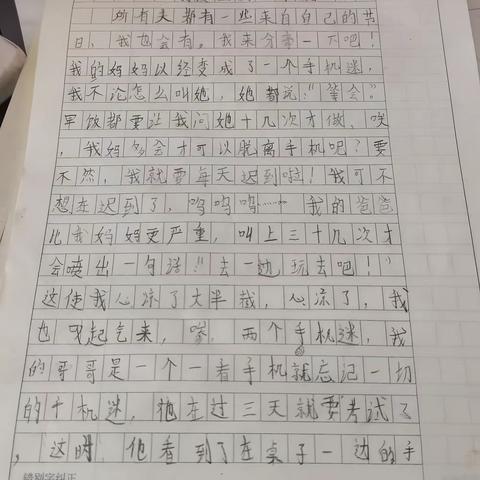 所有夫都有一些来自自己的苦
日，我也会有。我来分享一下吧！
我的妈妈以经变成了一个手机迷，
我不论怎么叫她，她都说："等会。"
早饭都要让我问她十几次才做、唉
，我妈多会才可以脱离手机呢？要
不然，我就要每天迟到啦！我可不
想在迟到了，呜呜呜……我的爸爸
比我妈妈更严重，叫上三十几次才
会喷出一句话"去一边玩去吧！"
这使我心凉了大半截，心凉了，我
也 起气来，哆，两个手机迷，我
的哥哥是一个一看手机就忘记一切
的千机迷，他在过三天就要考试了
，这时，他看到了在桌子一边的手
错别字纠正